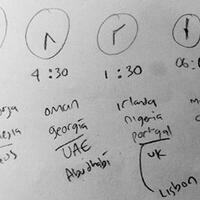 4:30
1:30
06:
oman
georgia
UAE
Abudhabi
irlanda
nigeria
portugal
UK
Lisbon